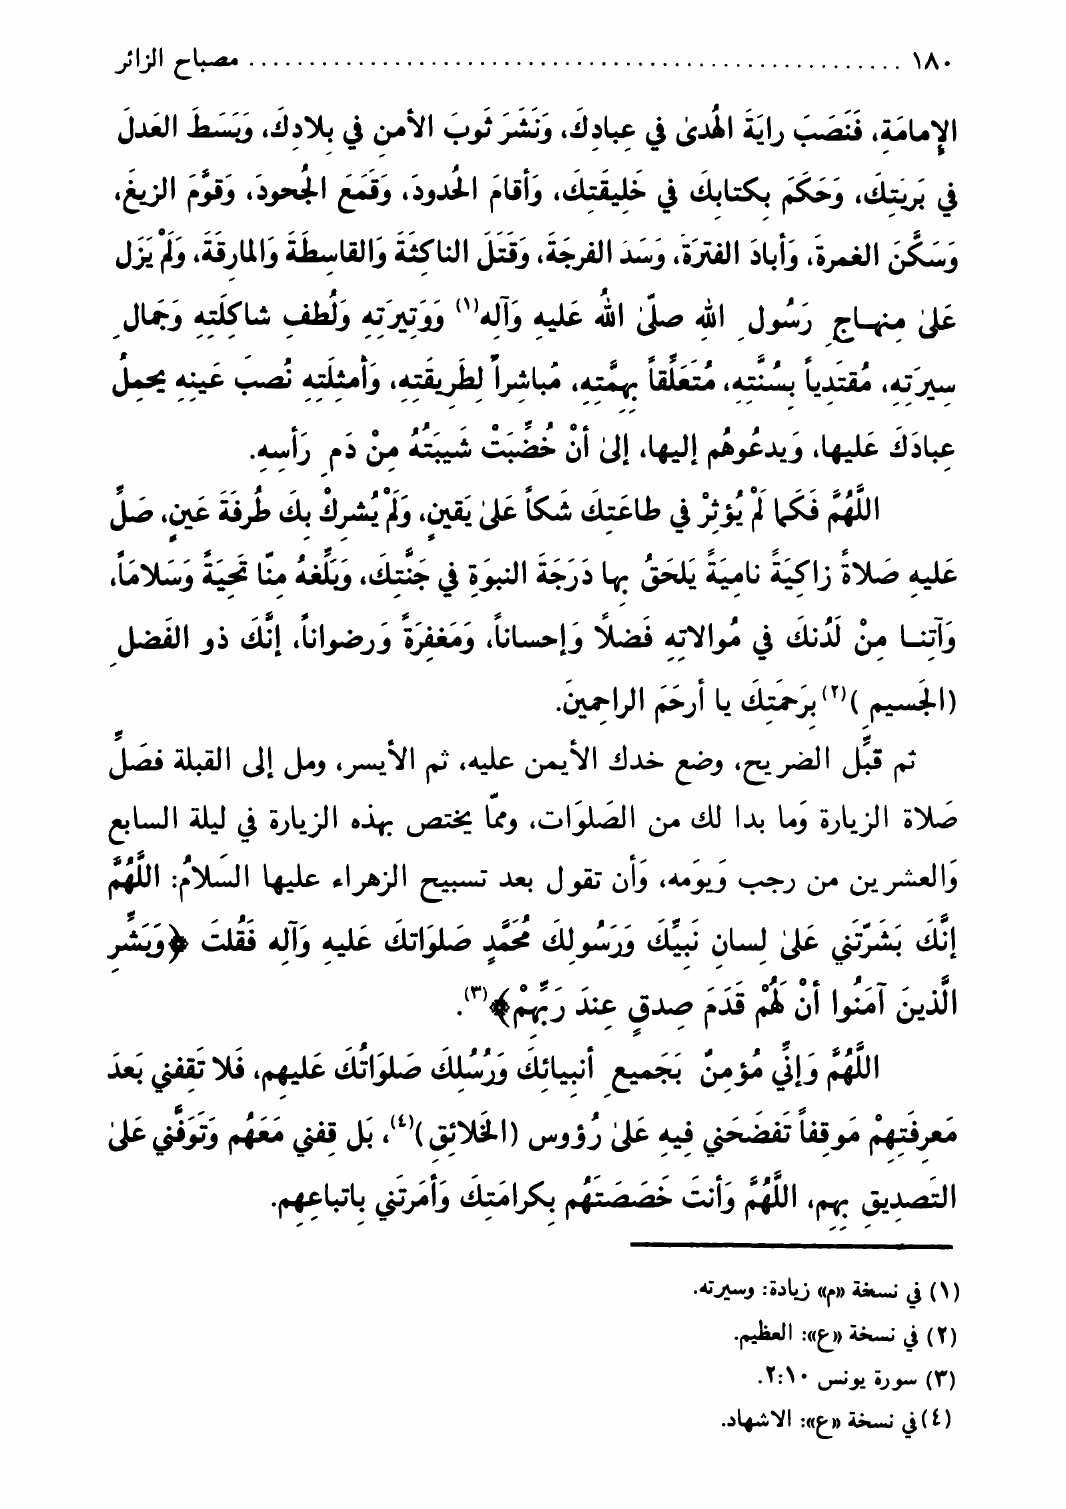 ١٨٠ .................................................... مصباح الزائر
الإِمامَةِ، فَنَصَبَ رايَةَ الهُدىٰ في عِبادِكَ، وَنَشَرَ ثَوبَ الأمنِ في بِلادِكَ، وَبَسَطَ العَدلَ
في بَرِيَتِكَ، وَحَكَمَ بِكتابِكَ في خَلِيقَتِكَ، وَأقامَ الحُدودَ، وَقَمَعَ الجُحودَ، وَقوَّمَ الزيغَ،
وَسَكَّنَ الغمرةَ، وَأبادَ الفترَةَ، وَسَدَ الفرجَةَ، وَقَتَلَ الناكِثَةَ وَالقاسِطَةَ وَالمارِقَةَ، وَلَمْ يَزَل
عَلىٰ مِنهاجِ رَسُولِ اللهِ صلّىٰ اللهُ عَليهِ وَآلِه(١) وَوَتِيرَتِهِ وَلُطفِ شاكِلَتِهِ وَجَمالِ
سِيرَتِهِ، مُقتَدِياً بِسُنَّتِهِ، مُتَعَلِّقاً بِهِمَّتِهِ، مُباشِراً لِطَرِيقَتِهِ، وَأمثِلَتِهِ نُصبَ عَينِهِ يحمِلُ
عِبادَكَ عَليها، وَيدعُوهُم إليها، إلىٰ أنْ خُضِّبَتْ شَيبَتُهُ مِنْ دَمِ رَأسِهِ.
اللَّهُمَّ فَكَما لَمْ يُؤثِرْ في طاعَتِكَ شَكاً عَلىٰ يَقينٍ، وَلَمْ يُشرِكْ بِكَ طُرفَةَ عَينٍ، صَلِّ
عَليهِ صَلاةً زاكِيَةً نامِيَةً يَلحَقُ بِها دَرَجَةَ النبوَةِ في جَنَّتِكَ، وَبَلِّغهُ مِنّا تَحيَةً وَسَلامَاً،
وَآتِنا مِنْ لَدُنكَ في مُوالاتِهِ فَضلاً وَإحساناً، وَمَغفِرَةً وَرضواناً، إنَّكَ ذو الفَضلِ
(الجَسيمِ)(٢) بِرَحمَتِكَ يا أرحَمَ الراحِمينَ.
ثم قبِّل الضريح، وضع خدك الأيمن عليه، ثم الأيسر، ومل إلى القبلة فصَلِّ
صَلاة الزيارة وَما بدا لك من الصَلوَات، وممّا يختص بهذه الزيارة في ليلة السابع
وَالعشرين من رجب وَيومه، وَأن تقول بعد تسبيح الزهراء عليها السَلامُ: اللَّهُمَّ
إنَّكَ بَشَرّتَني عَلىٰ لِسانِ نَبيِّكَ وَرَسُولِكَ مُحَمَّدٍ صَلوَاتكَ عَليهِ وَآلِه فَقُلتَ ﴿وَبَشِّرِ
الَّذينَ آمَنُوا أنْ لَهُمْ قَدَمَ صِدقٍ عِندَ رَبِّهِمْ﴾(٣).
اللَّهُمَّ وَإنِّي مُؤمِنٌ بَجَميعِ أنبِيائِكَ وَرُسُلِكَ صَلوَاتُكَ عَليهِم، فَلا تَقِفني بَعدَ
مَعرِفَتِهِمْ مَوقِفاً تَفضَحَني فِيهِ عَلىٰ رُؤوس (الخَلائِقِ)(٤)، بَل قِفني مَعَهُم وَتَوَفَّني عَلىٰ
التَصدِيقِ بِهِم، اللَّهُمَّ وَأنتَ خَصَصَتَهُم بِكرامَتِكَ وَأمَرتَني بِاتباعِهِم.
(١) في نسخة «م» زيادة: وسيرته.
(٢) في نسخة «ع»: العظيم.
(٣) سورة يونس ١٠:٢.
(٤) في نسخة «ع»: الاشهاد.